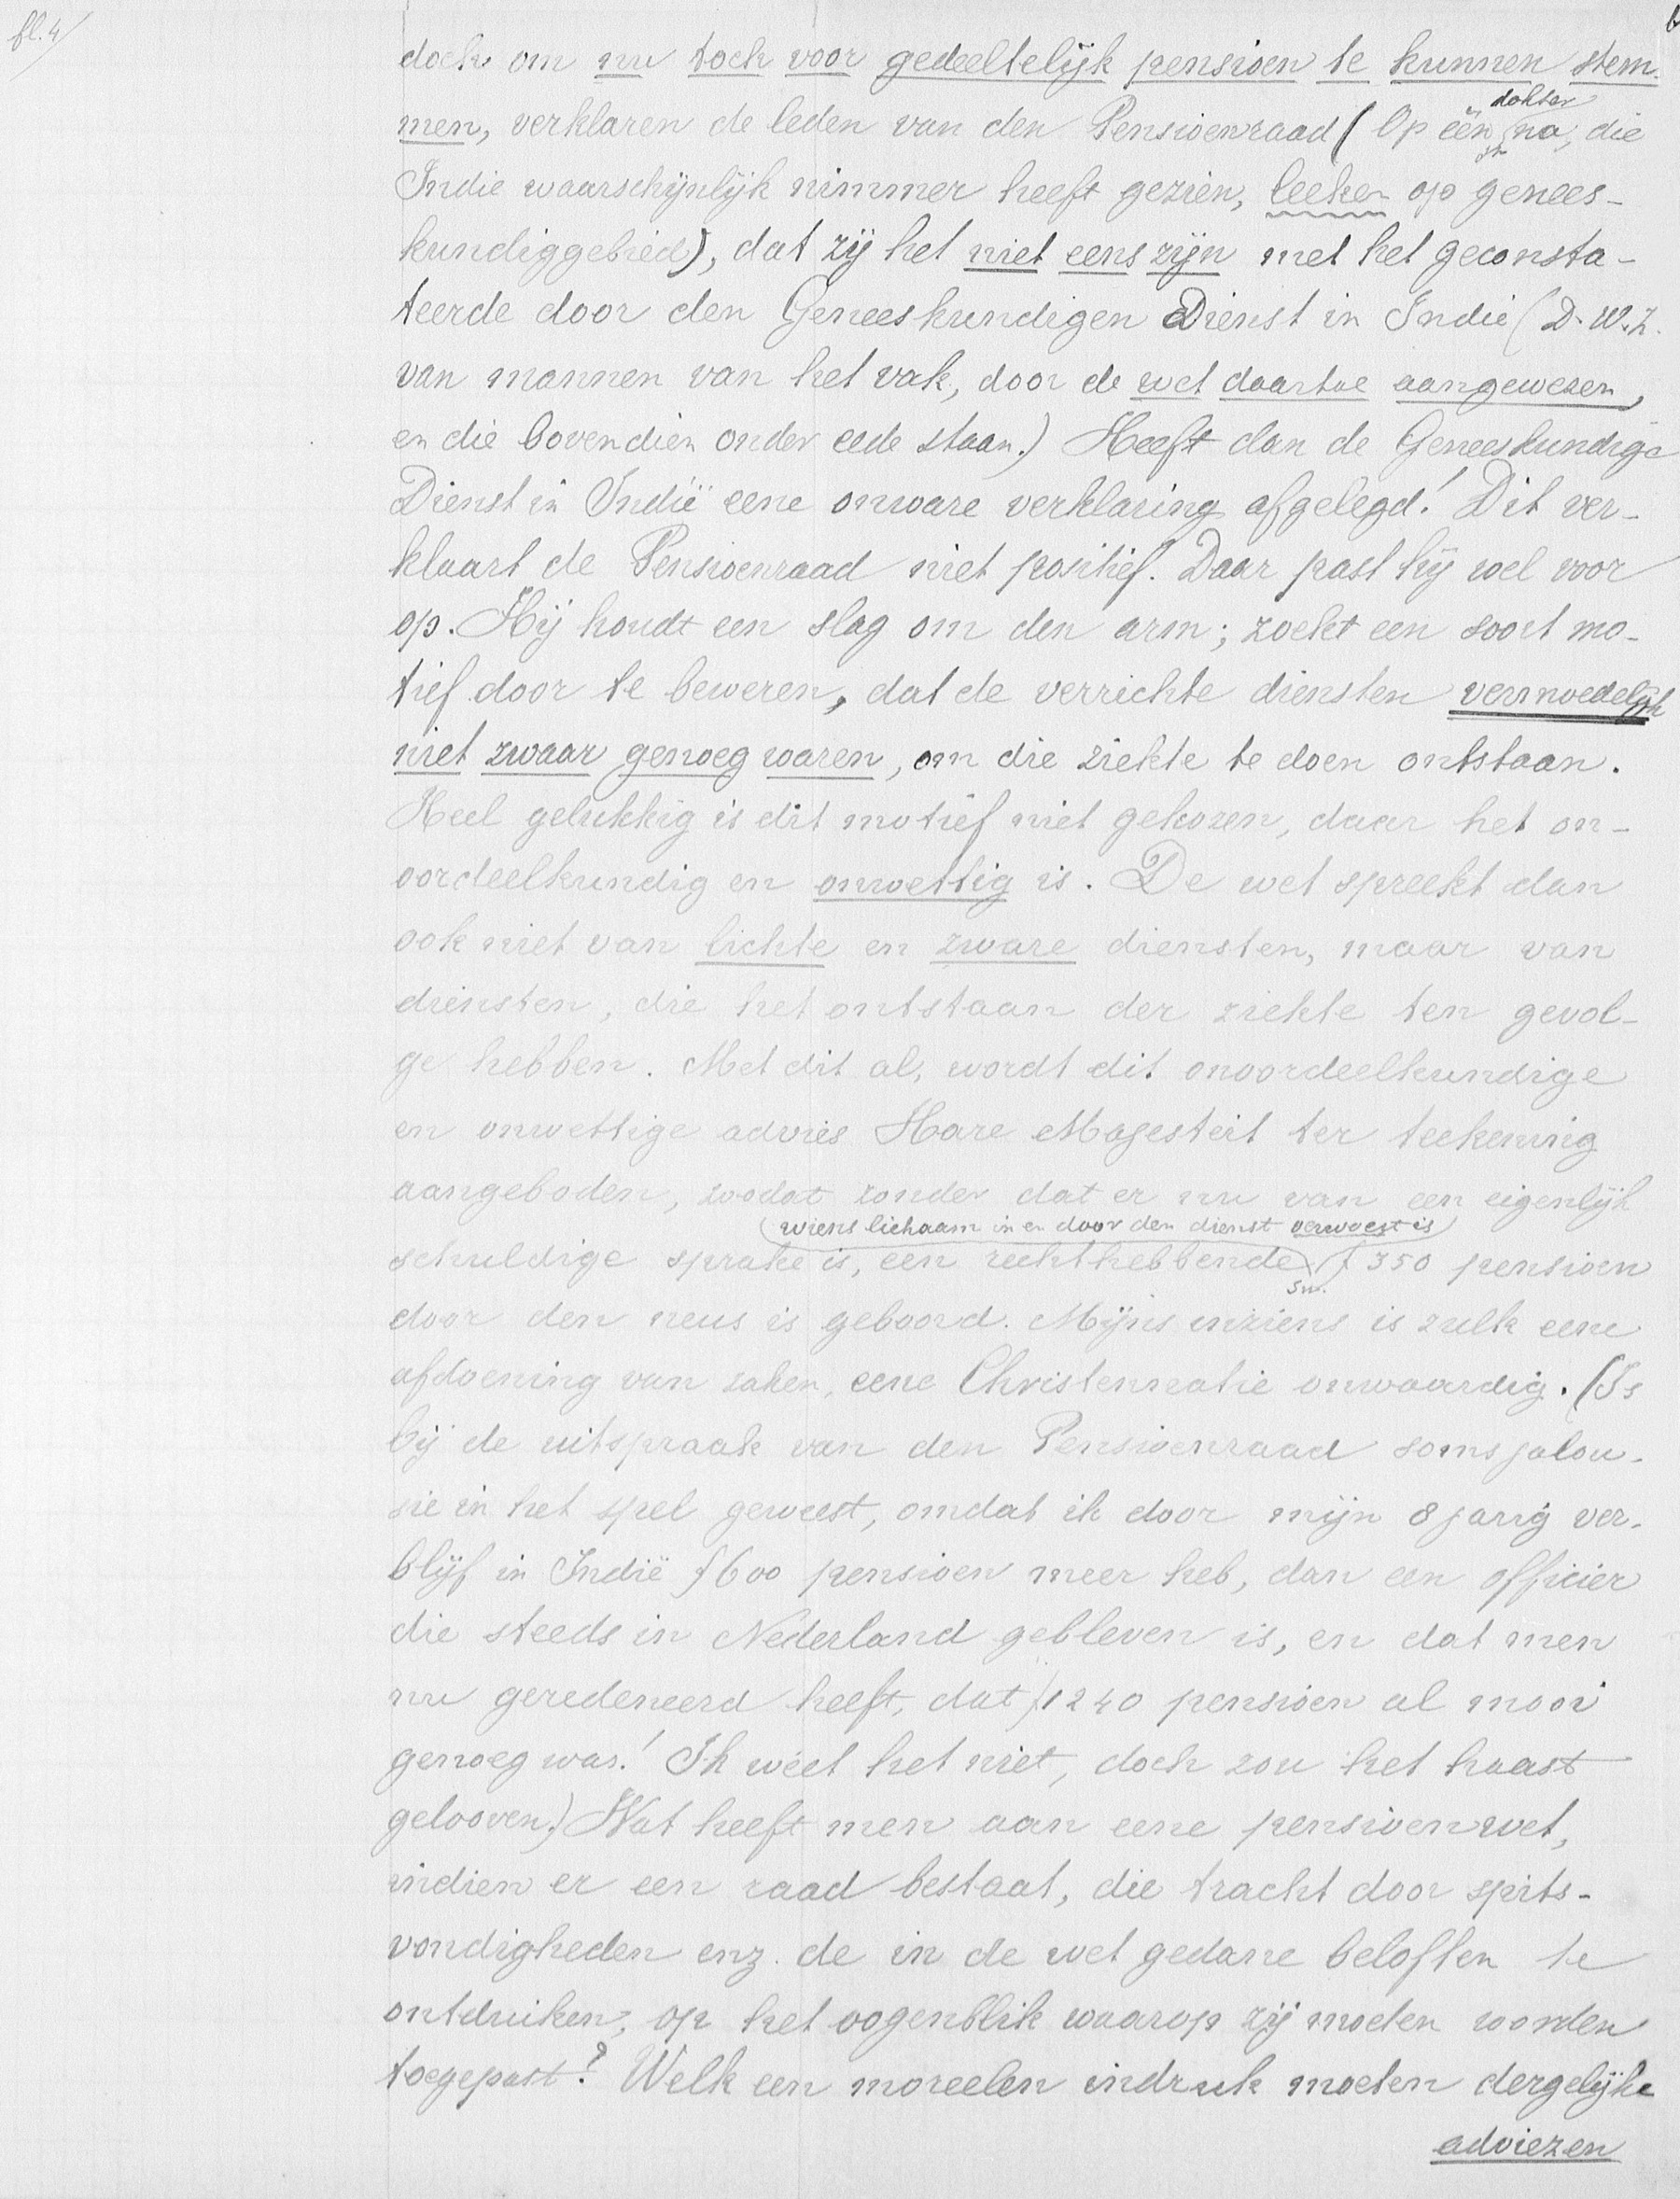 bl. 4/
doch om nu toch voor gedeeltelijk pensioen te kunnen stem-
dokter
men, verklaren de leden van den Pensioenraad (Op één na, die
Indie waarschijnlijk nimmer heeft gezien, leeken op genees-
kundiggebied), dat zij het niet eens zijn met het geconsta-
teerde door den Geneeskundigen Dienst in Indië (D.W.Z.
van mannen van het vak, door de wet daartoe aangewezen,
en die bovendien onder eede staan.) Heeft dan de Geneeskundige
Dienst in Indië eene onware verklaring afgelegd! Dit ver-
klaart de Pensioenraad niet positief. Daar past hij wel voor
op. Hij houdt een slag om den arm; zoekt een soort mo-
tief door te beweren, dat de verrichte diensten vermoedelijk
niet zwaar genoeg waren, om die ziekte te doen ontstaan.
Heel gelukkig is dit motief niet gekozen, daar het on-
oordeelkundig en onwettig is. De wet spreekt dan
ook niet van lichte en zware diensten, maar van
diensten, die het ontstaan der ziekte ten gevol-
ge hebben. Met dit al, wordt dit onoordeelkundige
en onwettige advies Hare Majesteit ter teekening
aangeboden, zoodat zonder dat er nu van een eigenlijk
(wiens lichaam in en door den dienst verwoest is)
schuldige sprake is, een rechthebbende f 350 pensioen
door den neus is geboord. Mijns inziens is zulk eene
afdoening van zaken, eene Christennatie onwaardig. (Is
bij de uitspraak van den Pensioenraad soms jalou-
sie in het spel geweest, omdat ik door mijn 8 jarig ver-
blijf in Indië f 600 pensioen meer heb, dan een officier
die steeds in Nederland gebleven is, en dat men
nu geredeneerd heeft, dat f 1240 pensioen al mooi
genoeg was! Ik weet het niet, doch zou het haast
gelooven.) Wat heeft men aan eene pensioenwet,
indien er een raad bestaat, die tracht door spits-
vondigheden enz. de in de wet gedane beloften te
ontduiken, op het oogenblik waarop zij moeten worden
toegepast? Welk een moreelen indruk moeten dergelijke
adviezen